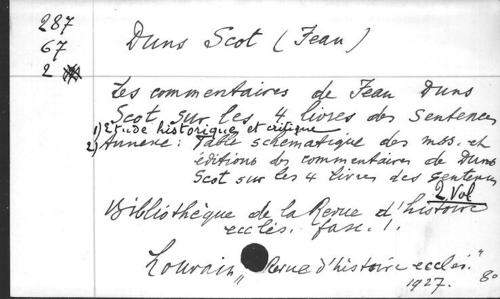 287
67
2
Duns Scot (Jean)
Les commentaires de Jean Duns
Scot sur les 4 livres des Sentences
1) Etude historique et critique
2) Annexe: Table schématique des mss. et
éditions des commentaires de Duns
Scot sur les 4 livres des sentences
2 Vol
Bibliothèque de la Revue d'histoire
ecclés. fasc. 1.
Louvain, „Revue d'histoire ecclés."
1927. 8°